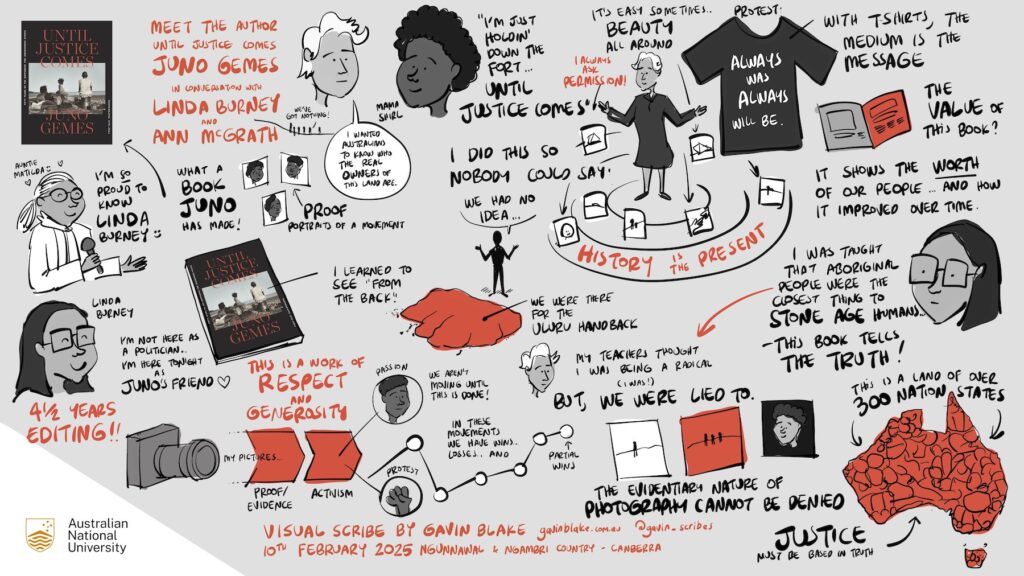 UNTIL
JUSTICE
COMES
JUNO
GEMES
MEET THE AUTHOR
UNTIL JUSTICE COMES
JUNO GEMES
IN CONVERSATION WITH
LINDA BURNEY
AND
ANN McGRATH
WE'VE
GOT NOTHING!
I WANTED
AUSTRALIANS
TO KNOW WHO
THE REAL
OWNERS OF
THIS LAND ARE.
MAMA
SHIRL
"I'M JUST
HOLDIN'
DOWN THE
FORT...
UNTIL
JUSTICE COMES"
IT'S EASY SOMETIMES..
BEAUTY
ALL AROUND
I ALWAYS
ASK
PERMISSION!
PROTEST:
ALWAYS
WAS
ALWAYS
WILL BE.
WITH TSHIRTS, THE
MEDIUM IS THE
MESSAGE
THE
VALUE OF
THIS BOOK?
IT SHOWS THE WORTH
OF OUR PEOPLE... AND HOW
IT IMPROVED OVER TIME.
AUNTIE
MATILDA:
I'M SO
PROUD TO
KNOW
LINDA
BURNEY
WHAT A
BOOK
JUNO
HAS MADE!
PROOF
PORTRAITS OF A MOVEMENT
I DID THIS SO
NOBODY COULD SAY:
WE HAD NO
IDEA...
HISTORY IS THE PRESENT
I WAS TAUGHT
THAT ABORIGINAL
PEOPLE WERE THE
CLOSEST THING TO
STONE AGE HUMANS..
- THIS BOOK TELLS
THE TRUTH!
UNTIL
JUSTICE
COMES
JUNO
GEMES
I LEARNED TO
SEE "FROM
THE BACK"
WE WERE THERE
FOR THE
ULURU HANDBACK
LINDA
BURNEY
I'M NOT HERE AS
A POLITICIAN..
I'M HERE TONIGHT
AS
JUNO'S FRIEND
4 1/2 YEARS
EDITING!!
THIS IS A WORK OF
RESPECT
AND
GENEROSITY
MY TEACHERS THOUGHT
I WAS BEING A RADICAL
(I WAS!)
BUT, WE WERE LIED TO.
THIS IS A LAND OF OVER
300 NATION STATES
MY PICTURES...
PROOF/
EVIDENCE
ACTIVISM
PASSION
WE AREN'T
MOVING UNTIL
THIS IS DONE!
PROTEST
IN THESE
MOVEMENTS
WE HAVE WINS..
LOSSES... AND
PARTIAL
WINS
THE EVIDENTIARY NATURE OF
PHOTOGRAPHY CANNOT BE DENIED
JUSTICE
MUST BE BASED IN TRUTH
VISUAL SCRIBE BY GAVIN BLAKE gavinblake.com.au @gavin_scribes
10TH FEBRUARY 2025 NGUNNAWAL & NGAMBRI COUNTRY - CANBERRA
Australian
National
University